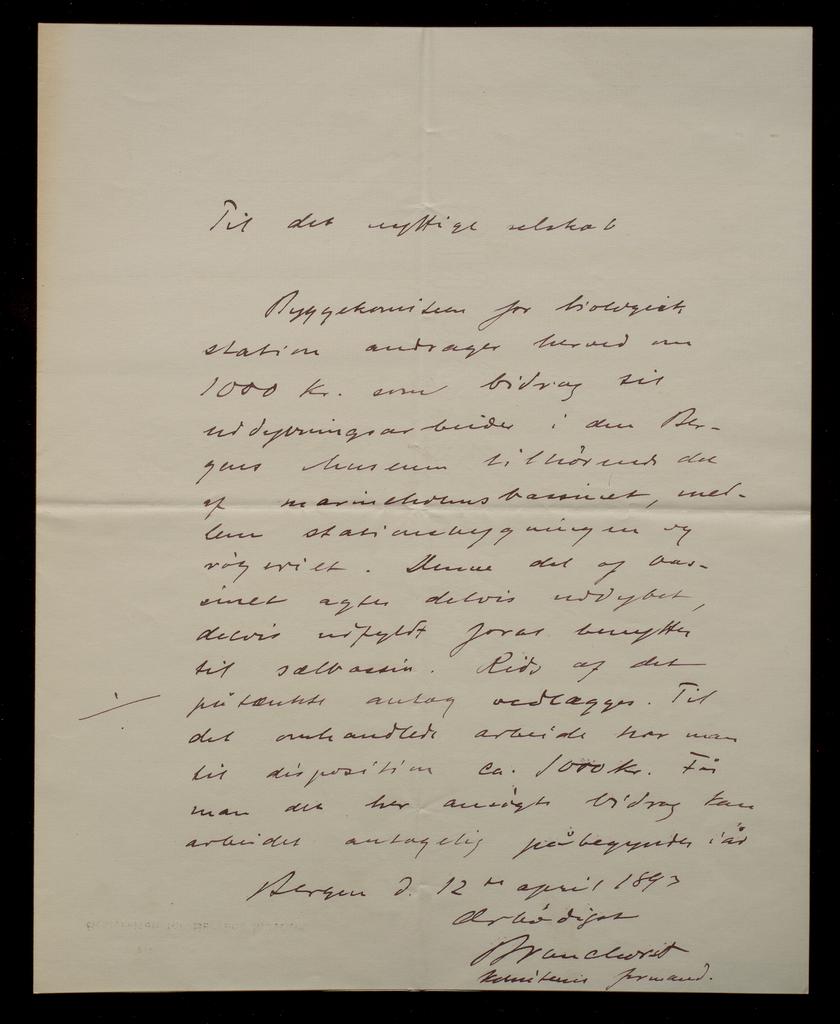 Til det nyttige selskab
Byggekomiteen for biologisk
station andrager herved om
1000 kr. som bidrag til
uddybningsarbeider i den Ber-
gens Museum tilhörende del
af marineholmsbassinet, mel-
lem stationsbygningen og
Denne del af bas-
sinet agtes delvis uddybet,
delvis udfyldt foras benyttes
til sælbassin. Rids af det
påtænkte anlæg vedlægges. Til
det omhandlede arbeide har man
til disposition ca. 1000 kr. Får
man det her ansögte bidrag kan
arbeidet antagelig påbegyndes i år
Bergen d. 12te april 1893
Ærbödigst
Brunchorst
komiteens formand.